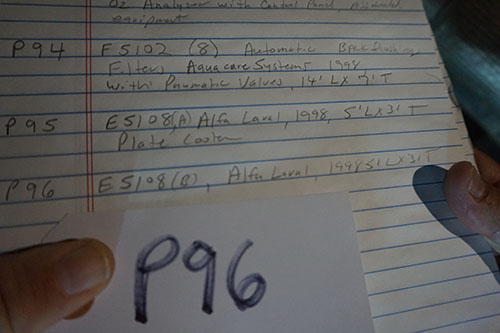 O2 Analyzer with Control Panel, Associated
equipment
P94 E5102 (8) Automatic Back flushing
Filters Aquacare Systems 1998
with Pnumatic Valves, 14' L X 7' T
P95 E5108(A) Alfa Laval, 1998, 5' L X 3' T
Plate Cooler
P96 E5108(B), Alfa Laval, 1998 5' L X 3' T
P96